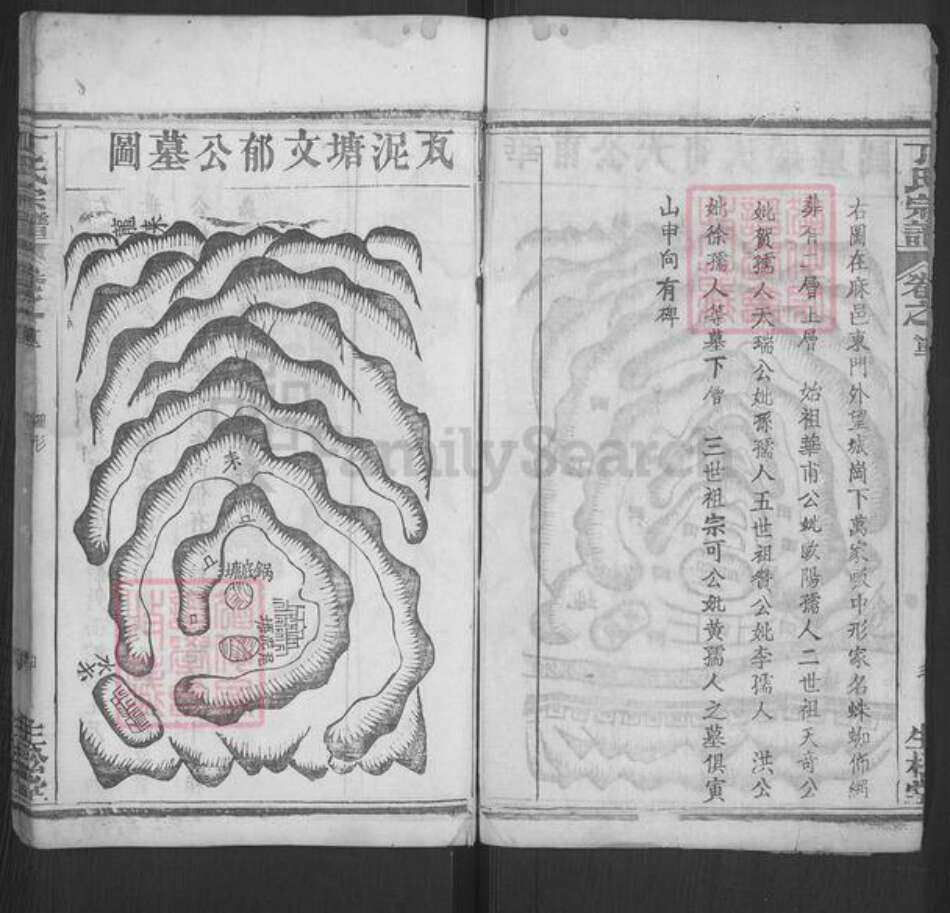 丁氏宗譜
卷之一
生松堂
右圖在麻邑東門外望城崗下萬家畈中形家名蛛蜘佈網
葬有二層上層 始祖華甫公妣歐陽孺人二世祖天奇公
妣賀孺人天瑞公妣孫孺人五世祖贊公妣李孺人 洪公
妣徐孺人等墓下層 三世祖宗可公妣黃孺人之墓俱寅
山申向有碑
瓦泥塘文郁公墓圖
來
來
水來
丁氏宗譜
生松堂
FamilySearch